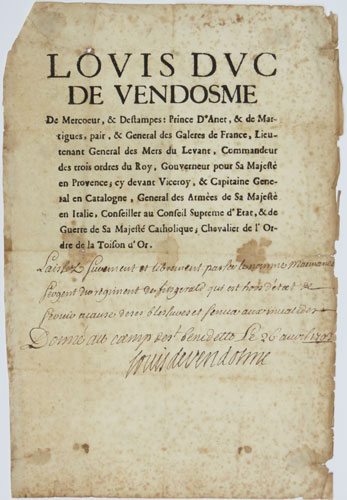 LOVIS DVC
DE VENDOSME
De Mercoeur, & Destampes: Prince D'Anet, & de Mar-
tigues, pair, & General des Galeres de France, Lieu-
tenant General des Mers du Levant, Commandeur
des trois ordres du Roy, Gouverneur pour Sa Majestè
en Provence; cy devant Viceroy, & Capitaine Gene-
ral en Catalogne, General des Armées de Sa Majestè
en Italie, Conseiller au Conseil Supreme d'Etat, & de
Guerre de Sa Majesté Catholique; Chevalier de l'Or-
dre de la Toison d'Or.
Laissez surement et librement passer
Sergent du regiment de fitzgerald qui est hors d'etat de
servir a cause de ses blessures et
Donné au camp de St benedetto Le 26 avril
Louis de vendosme